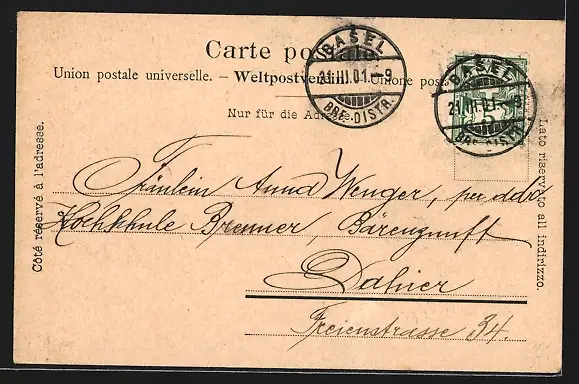 Carte postale
Union postale universelle. — Weltpostverein. — Unione postale
Nur für die Adresse.
BASEL
21.III.01.-9
BRF.-DISTR.
BASEL
21.III.01.-9
BRF.-DISTR.
5
Côté réservé à l'adresse.
Lato riservato all indirizzo.
Fräulein Anna Wenger, per adr.
Kochschule Brenner, Bärenzunft
Dahier
Freienstrasse 34.